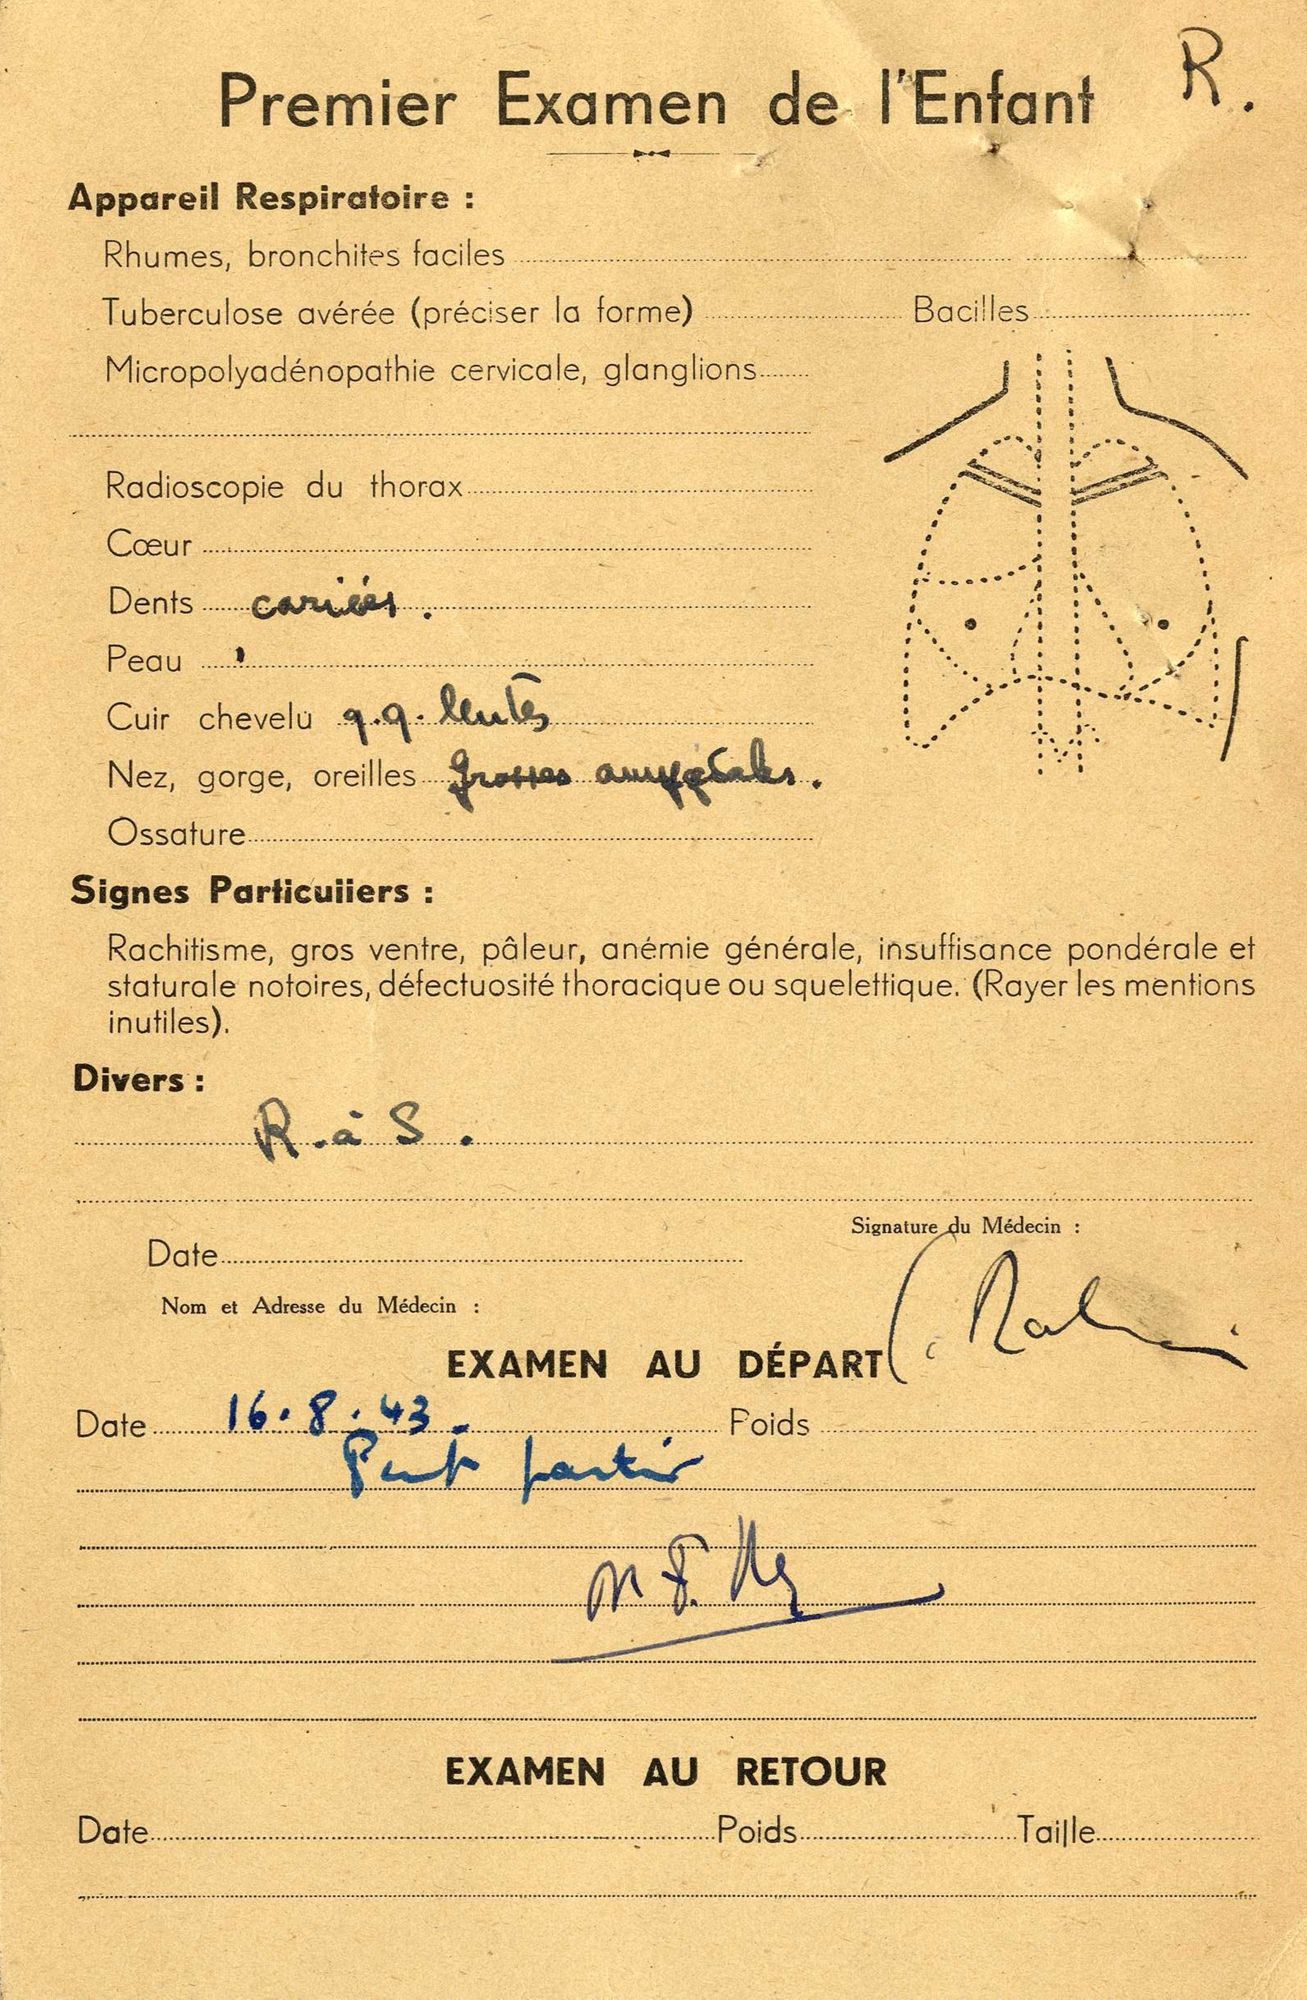 R.
Premier Examen de l'Enfant
Appareil Respiratoire :
Rhumes, bronchites faciles
Tuberculose avérée (préciser la forme) Bacilles
Micropolyadénopathie cervicale, glanglions
Radioscopie du thorax
Cœur
Dents cariées.
Peau
Cuir chevelu q.q. lentes
Nez, gorge, oreilles grosses amygdales.
Ossature
Signes Particuliers :
Rachitisme, gros ventre, pâleur, anémie générale, insuffisance pondérale et
staturale notoires, défectuosité thoracique ou squelettique. (Rayer les mentions
inutiles).
Divers :
R. à S.
Signature du Médecin :
Date
Nom et Adresse du Médecin :
EXAMEN AU DÉPART
Date 16.8.43. Poids
Peut partir
EXAMEN AU RETOUR
Date Poids Taille